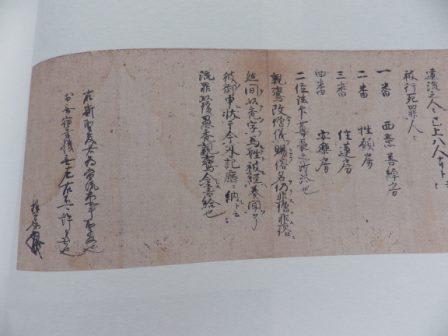 遠流之人々已上八人ナリト云々
被行死罪人々
一番　西意善綽房
二番　性願房
三番　住蓮房
四番　安樂房
二位法印尊長之沙汰也
親鸞改僧儀賜俗名仍非僧非俗
然間以禿字為姓被経奏聞了
彼御申状于今外記廳ニ納ルト云々
流罪以後愚禿親鸞令書給也
右斯聖教者為當流大事聖教也
於無宿善機無左右不可許之者也
釋蓮如